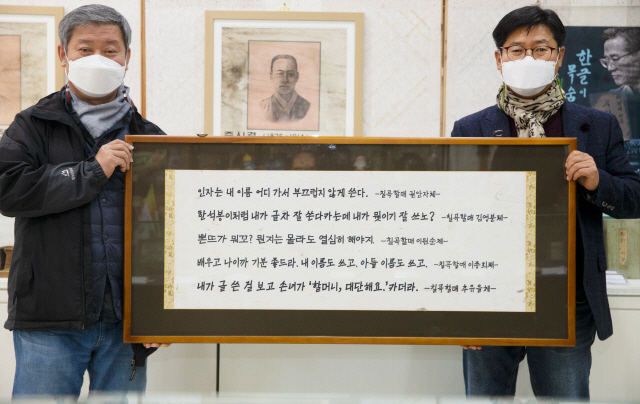 주시경
한글이
목숨
인자는 내 이름 어디 가서 부끄럽지 않게 쓴다. -칠곡할매 권안자체-
한석봉이처럼 내가 글자 잘 쓴다카는데 내가 뭔이기 잘 쓰노? -칠곡할매 김영분체-
뽄뜨가 뭐꼬? 뭔지는 몰라도 열심히 해야지. -칠곡할매 이원순체-
배우고 나이까 기분 좋드라. 내 이름도 쓰고, 아들 이름도 쓰고. -칠곡할매 이종희체-
내가 글 쓴 걸 보고 손녀가 '할머니, 대단해요.'카더라. -칠곡할매 추유을체-